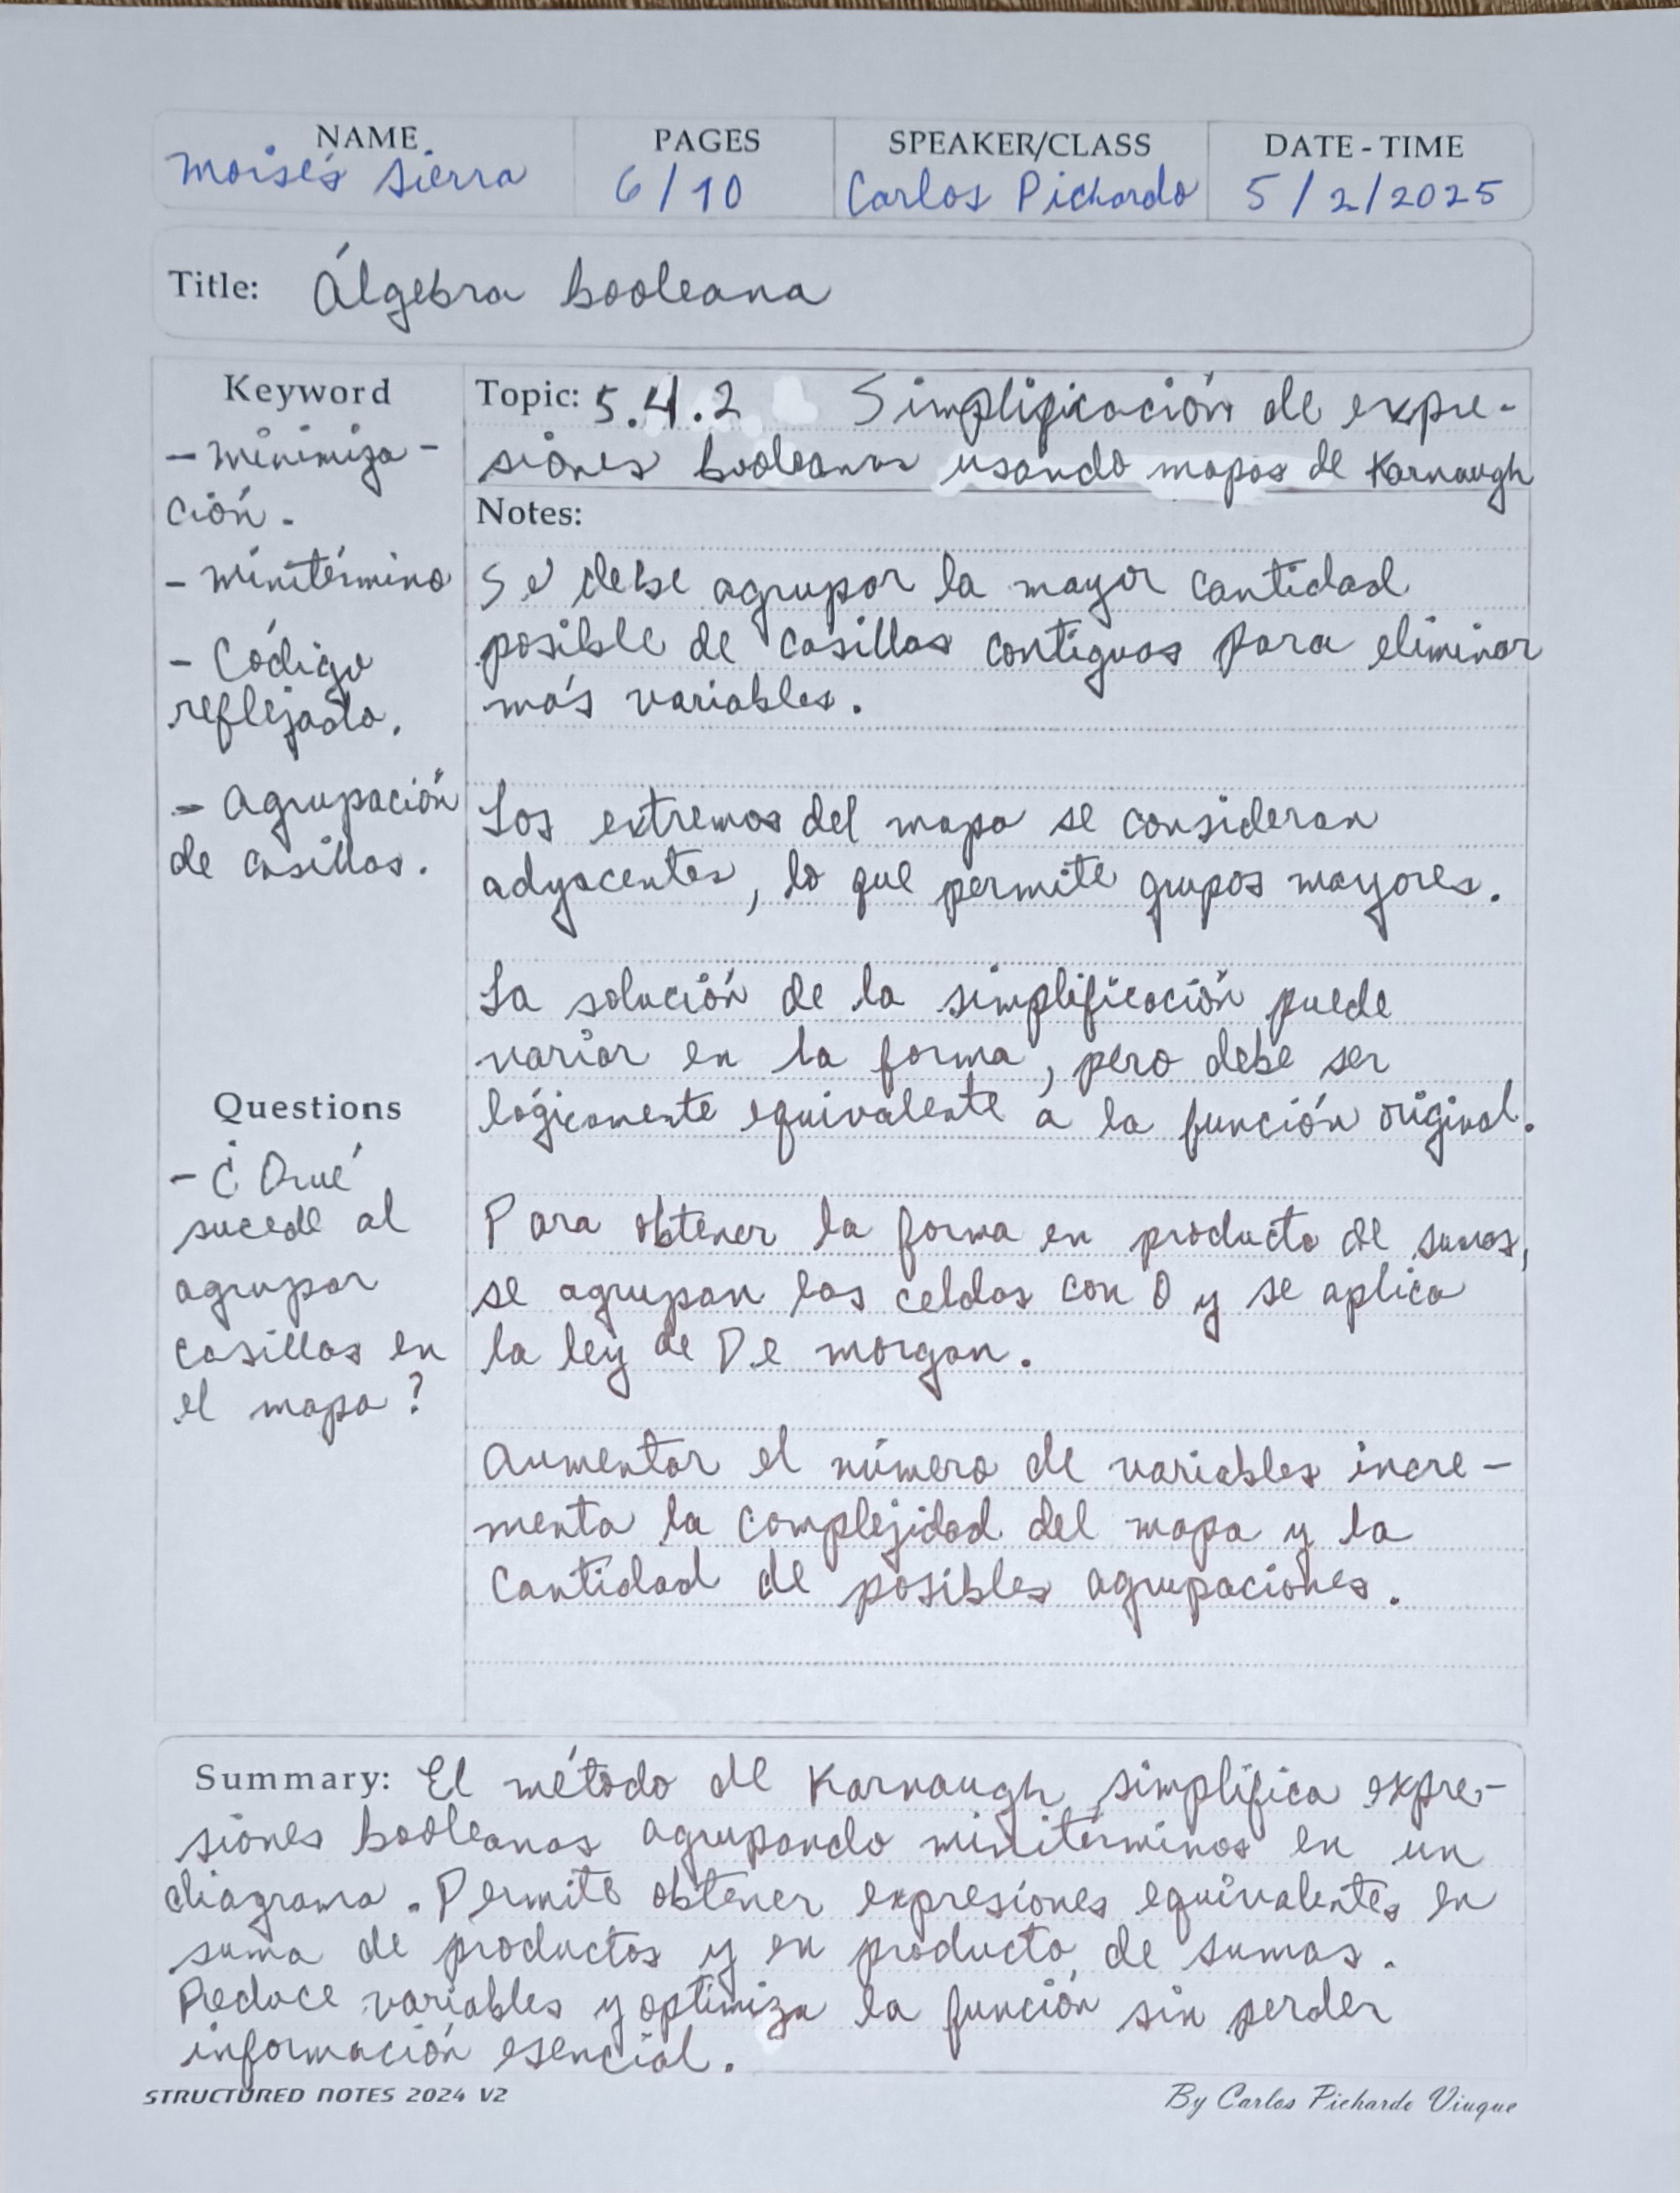 NAME PAGES SPEAKER/CLASS DATE - TIME
Moisés Sierra 6/10 Carlos Pichardo 5/2/2025
Title: Álgebra booleana
Keyword
- minimiza-
ción.
- minitérmino
- Código
reflejado.
- Agrupación
de casillas.
Questions
- ¿Qué
sucede al
agrupar
casillas en
el mapa?
Topic: 5.4.2 Simplificación de expre-
siones booleanas usando mapas de Karnaugh
Notes:
Se debe agrupar la mayor cantidad
posible de casillas contiguas para eliminar
más variables.
Los extremos del mapa se consideran
adyacentes, lo que permite grupos mayores.
La solución de la simplificación puede
variar en la forma, pero debe ser
lógicamente equivalente a la función original.
Para obtener la forma en producto de sumas,
se agrupan las celdas con 0 y se aplica
la ley de De morgan.
Aumentar el número de variables incre-
menta la complejidad del mapa y la
cantidad de posibles agrupaciones.
Summary: El método de Karnaugh simplifica expre-
siones booleanas agrupando minitérminos en un
diagrama. Permite obtener expresiones equivalentes en
suma de productos y en producto de sumas.
Reduce variables y optimiza la función sin perder
información esencial.
STRUCTURED NOTES 2024 V2 By Carlos Pichardo Viuque